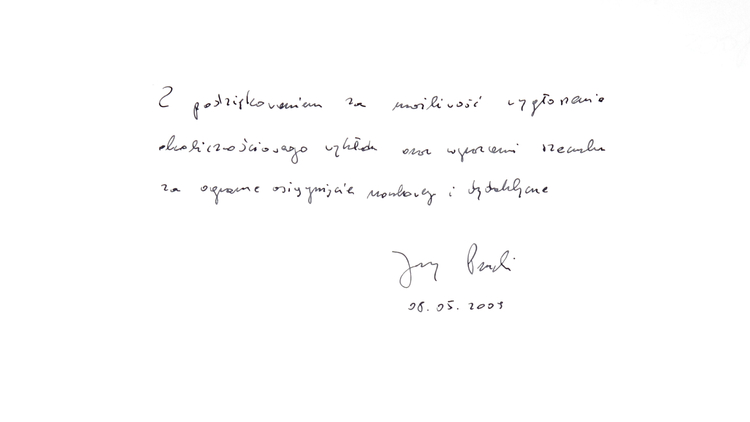 Z podziękowaniem za możliwość wygłoszenia
okolicznościowego wykładu oraz wyrazami szacunku
za ogromne osiągnięcia naukowe i dydaktyczne
Jerzy
08.05.2009